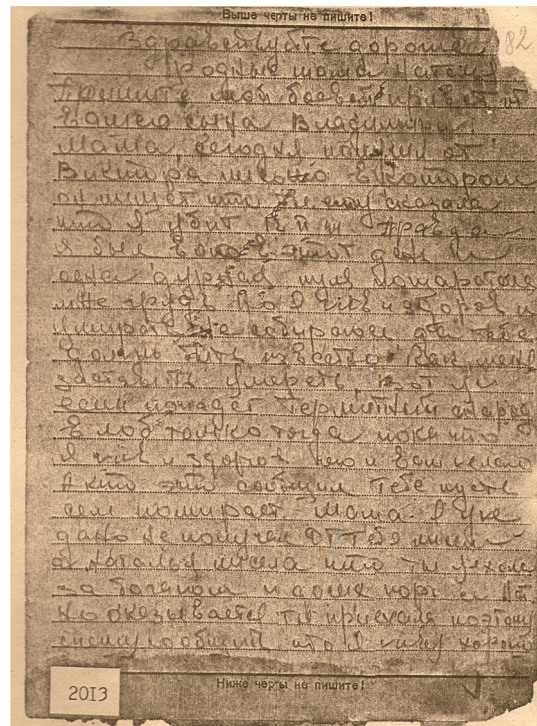 Выше черты не пишите!
82
Здравствуйте дорогая
родные мама
Примите мой боевой привет от
Вашего сына Владимира.
Мама сегодня получил от
Виктора письмо в котором
он пишет что ему сказала
что я убит Правда
я был в этот день и
одна дурная пуля поцарапала
мне грудь Но я жив и здоров и
умирать не собираюсь
умереть вот ли
если попадет термитный снаряд
в лоб только тогда пока что
я жив и здоров чего и вам желаю
А кто это сообщил тебе пусть
сам помирает Мама я уже
давно не получал от тебя писем
писала что ты уехала
за
оказывается ты приехала поэтому
спешу сообщить что я живу хорошо
Ниже черты не пишите!
2013